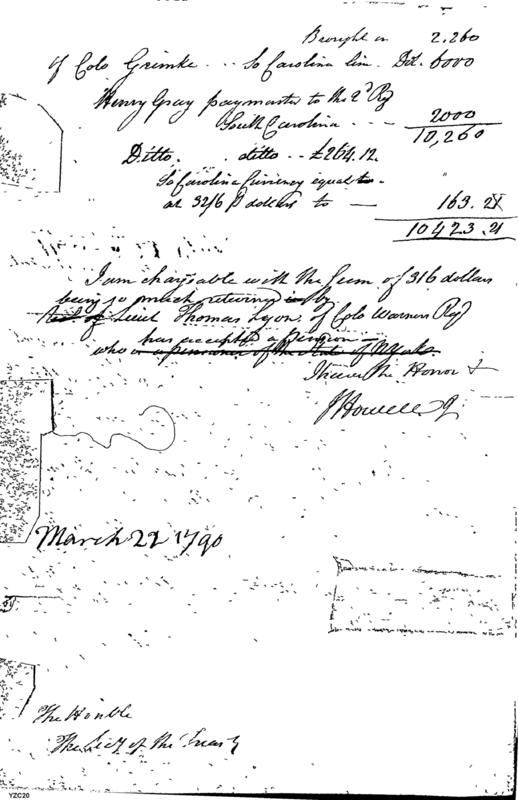 Brought on 2.260
of Colo Grimke - - So Carolina line. Dit. 6000
Henry Gray paymaster to the 2d Reg
South Carolina - - - 2000
10,260
Ditto. ditto - - £264.12.
So Carolina Currency equal to
at 32/6 P dollars to — 163.21
10423.21
I am chargeable with the Sum of 316 dollars
being so much returned by
Lieut Thomas Lyon of Colo Warners Reg
has accepted a pension
who is a pensioner of the State of NYork.
I have the Honor &
J Howell
March 22 1790
The Honble
The Secy of the Treasy
YZC20